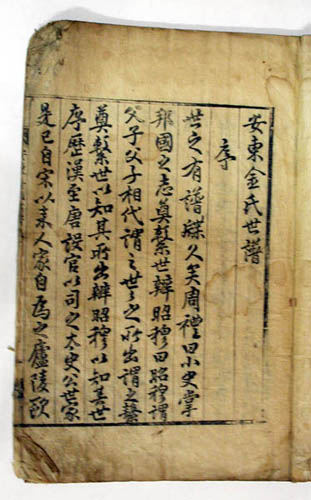 安東金氏世譜
序
世之有譜牒久矣周禮曰小史掌
邦國之志奠繫世辨昭穆曰昭穆謂
父子父子相代謂之世世之所出謂之繫
奠繫世以知其所出辨昭穆以知其世
序歷漢至唐設官以司之太史公世家
是已自宋以來人家自爲之廬陵歐